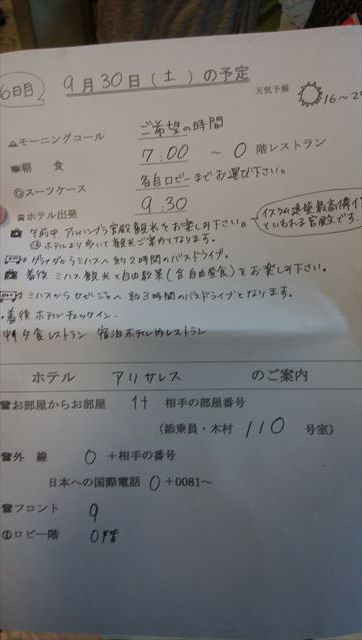 6日目
9月30日(土)の予定
天気予報 16~2
モーニングコール ご希望の時間
朝 食 7:00 ~ 0 階レストラン
◎スーツケース 各自ロビーまでお運び下さい。
ホテル出発 9:30
午前中 アルハンブラ宮殿観光をお楽しみ下さい。
イスラム建築最高傑作
といわれる宮殿です。
ホテルより歩いて観光ご案内となります。
グラナダからミハスへ約2時間のバスドライブ。
着後 ミハス観光と自由散策(含自由昼食)をお楽しみ下さい。
ミハスからセビリアへ 約3時間のバスドライブとなります。
・着後 ホテルチェックイン。
夕食レストラン 宿泊ホテル内レストラン
ホテル アリサレス のご案内
☎お部屋からお部屋 1+ 相手の部屋番号
(添乗員・木村 110 号室)
☎外 線 0 +相手の番号
日本への国際電話 0+0081~
☎フロント 9
ロビー階 0階